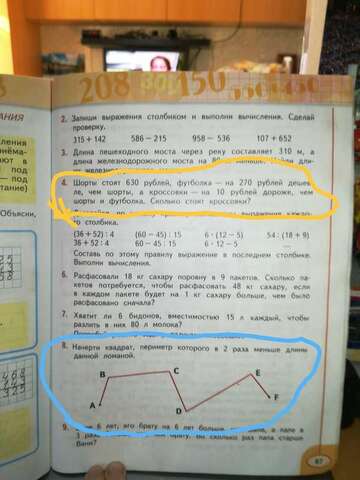 208 150 350
2. Запиши выражения столбиком и выполни вычисления. Сделай
проверку.
315 + 142 586 − 215 958 − 536 107 + 652
3. Длина пешеходного моста через реку составляет 310 м, а
длина железнодорожного моста на
4. Шорты стоят 630 рублей, футболка — на 270 рублей дешев-
ле, чем шорты, а кроссовки — на 10 рублей дороже, чем
шорты и футболка. Сколько стоят кроссовки?
го столбика.
(36 + 52) : 4 (60 − 45) : 15 6 · (12 − 5) 54 : (18 + 9)
36 + 52 : 4 60 − 45 : 15 6 · 12 − 5 ...
Составь по этому правилу выражение в последнем столбике.
Выполни вычисления.
6. Расфасовали 18 кг сахару поровну в 9 пакетов. Сколько па-
кетов потребуется, чтобы расфасовать 48 кг сахару, если
в каждом пакете будет на 1 кг сахару больше, чем было
расфасовано сначала?
7. Хватит ли 6 бидонов, вместимостью 15 л каждый, чтобы
разлить в них 80 л молока?
8. Начерти квадрат, периметр которого в 2 раза меньше длины
данной ломаной.
A B C D E F
9. 6 лет, его брату на 6 лет больше, а папе в
3 раза брату. Во сколько раз папа старше
Вани?
87